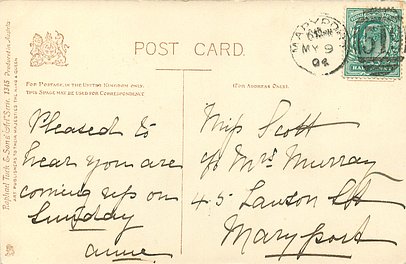 POST CARD.
FOR POSTAGE IN THE UNITED KINGDOM ONLY,
THIS SPACE MAY BE USED FOR CORRESPONDENCE
(FOR ADDRESS ONLY.)
Raphael Tuck & Sons' "Art" Serie 1315 Printed in Austria
ART PUBLISHERS TO THEIR MAJESTIES THE KING & QUEEN
MARYPORT
MY 9
04
Pleased to
hear you are
coming up on
Sunday
Annie
Miss Scott
c/o Mrs Murray
45 Lawson St
Maryport